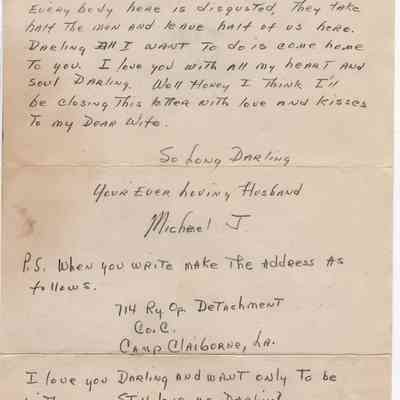 Every body here is disgusted, They take
half The men and leave half of us here.
Darling All I want To do is come home
To you. I love you with all my heart And
soul Darling. Well Honey I Think I'll
be closing This letter with love and kisses
To my Dear Wife.
So Long Darling
Your Ever Loving Husband
Michael J.
P.S. When you write make The Address As
follows.
714 Ry Op. Detachment
Co. C.
Camp Claiborne, La.
I love you Darling and want only To be